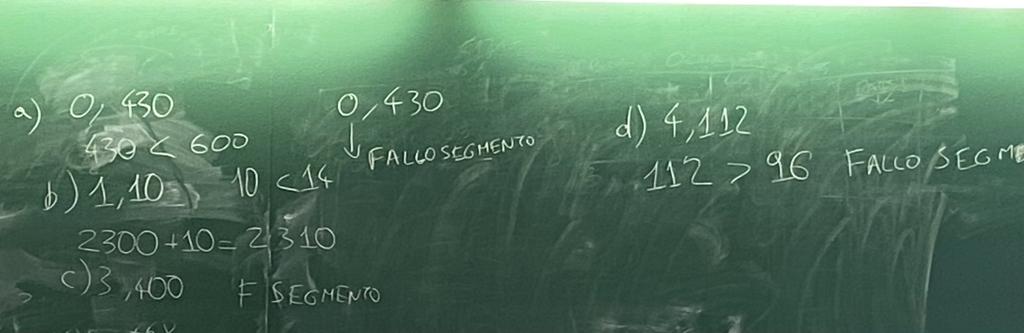 a) 0, 430
430 < 600
b) 1, 10 10 < 14
2300 + 10 = 2310
c) 3, 400 F SEGMENTO
0, 430
↓ FALLO SEGMENTO
d) 4, 112
112 > 96 FALLO SEGME